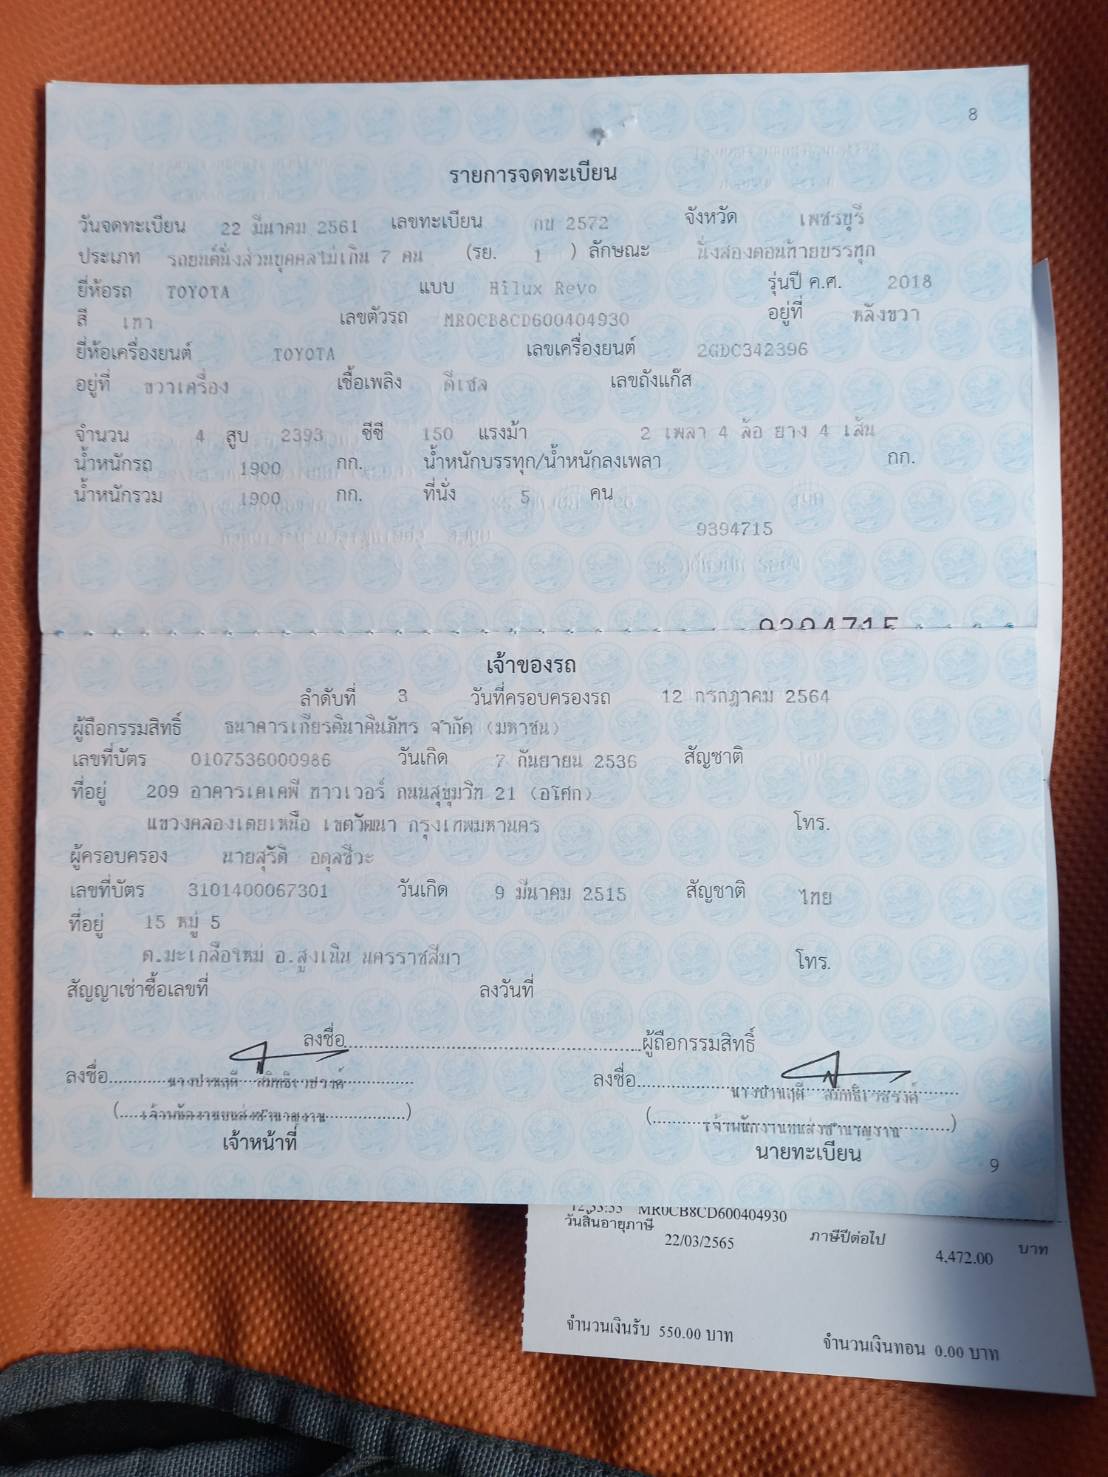 8
รายการจดทะเบียน
วันจดทะเบียน 22 มีนาคม 2561 เลขทะเบียน กบ 2572 จังหวัด เพชรบุรี
ประเภท รถยนต์นั่งส่วนบุคคลไม่เกิน 7 คน (รย. 1 ) ลักษณะ นั่งสองตอนท้ายบรรทุก
ยี่ห้อรถ TOYOTA แบบ Hilux Revo รุ่นปี ค.ศ. 2018
สี เทา เลขตัวรถ MR0CB8CD600404930 อยู่ที่ หลังขวา
ยี่ห้อเครื่องยนต์ TOYOTA เลขเครื่องยนต์ 2GDC342396
อยู่ที่ ขวาเครื่อง เชื้อเพลิง ดีเซล เลขถังแก๊ส
จำนวน 4 สูบ 2393 ซีซี 150 แรงม้า 2 เพลา 4 ล้อ ยาง 4 เส้น
น้ำหนักรถ 1900 กก. น้ำหนักบรรทุก/น้ำหนักลงเพลา กก.
น้ำหนักรวม 1900 กก. ที่นั่ง 5 คน
9394715
9394715
เจ้าของรถ
ลำดับที่ 3 วันที่ครอบครองรถ 12 กรกฎาคม 2564
ผู้ถือกรรมสิทธิ์ ธนาคารเกียรตินาคินภัทร จำกัด (มหาชน)
เลขที่บัตร 0107536000986 วันเกิด 7 กันยายน 2536 สัญชาติ
ที่อยู่ 209 อาคารเคเคพี ทาวเวอร์ ถนนสุขุมวิท 21 (อโศก)
แขวงคลองเตยเหนือ เขตวัฒนา กรุงเทพมหานคร โทร.
ผู้ครอบครอง นายสุรัติ อดุลชีวะ
เลขที่บัตร 3101400067301 วันเกิด 9 มีนาคม 2515 สัญชาติ ไทย
ที่อยู่ 15 หมู่ 5
ต.มะเกลือใหม่ อ.สูงเนิน นครราชสีมา โทร.
สัญญาเช่าซื้อเลขที่ ลงวันที่
ลงชื่อ ผู้ถือกรรมสิทธิ์
ลงชื่อ ลงชื่อ
เจ้าหน้าที่ นายทะเบียน
9
12:53:53 MR0CB8CD600404930
วันสิ้นอายุภาษี 22/03/2565 ภาษีปีต่อไป 4,472.00 บาท
จำนวนเงินรับ 550.00 บาท จำนวนเงินทอน 0.00 บาท